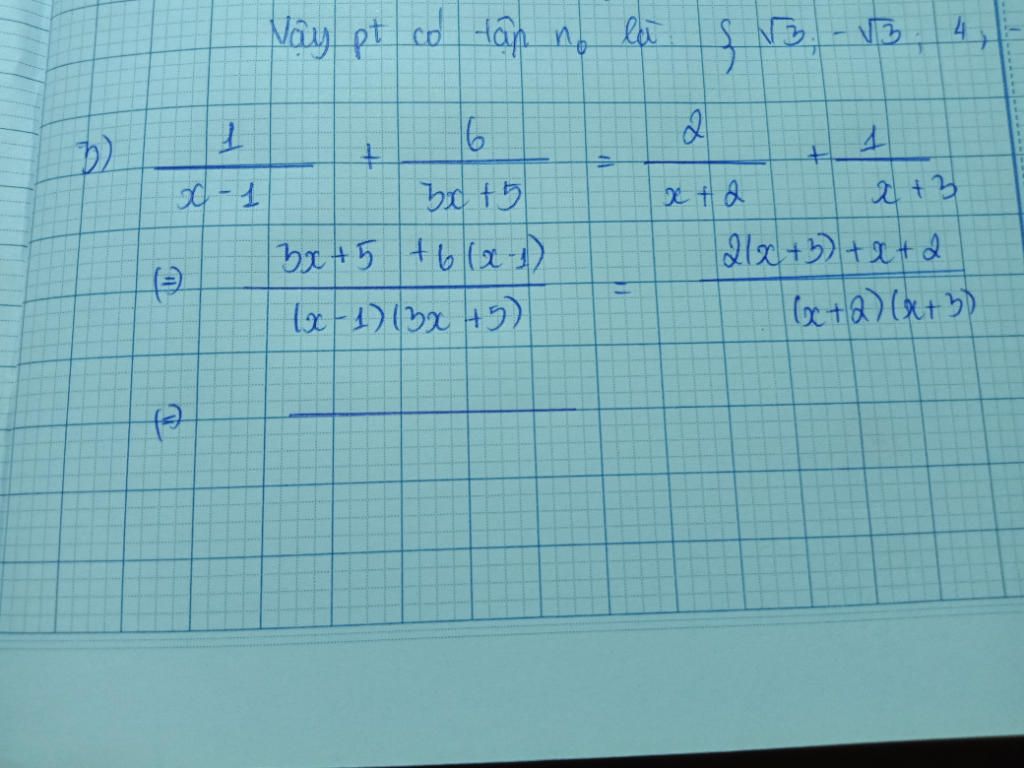 Vậy pt có tập n₀ là { √3; -√3; 4; -
3) 1/(x-1) + 6/(3x+5) = 2/(x+2) + 1/(x+3)
(=) (3x+5 +6(x-1))/((x-1)(3x+5)) = (2(x+3)+x+2)/((x+2)(x+3))
(=)